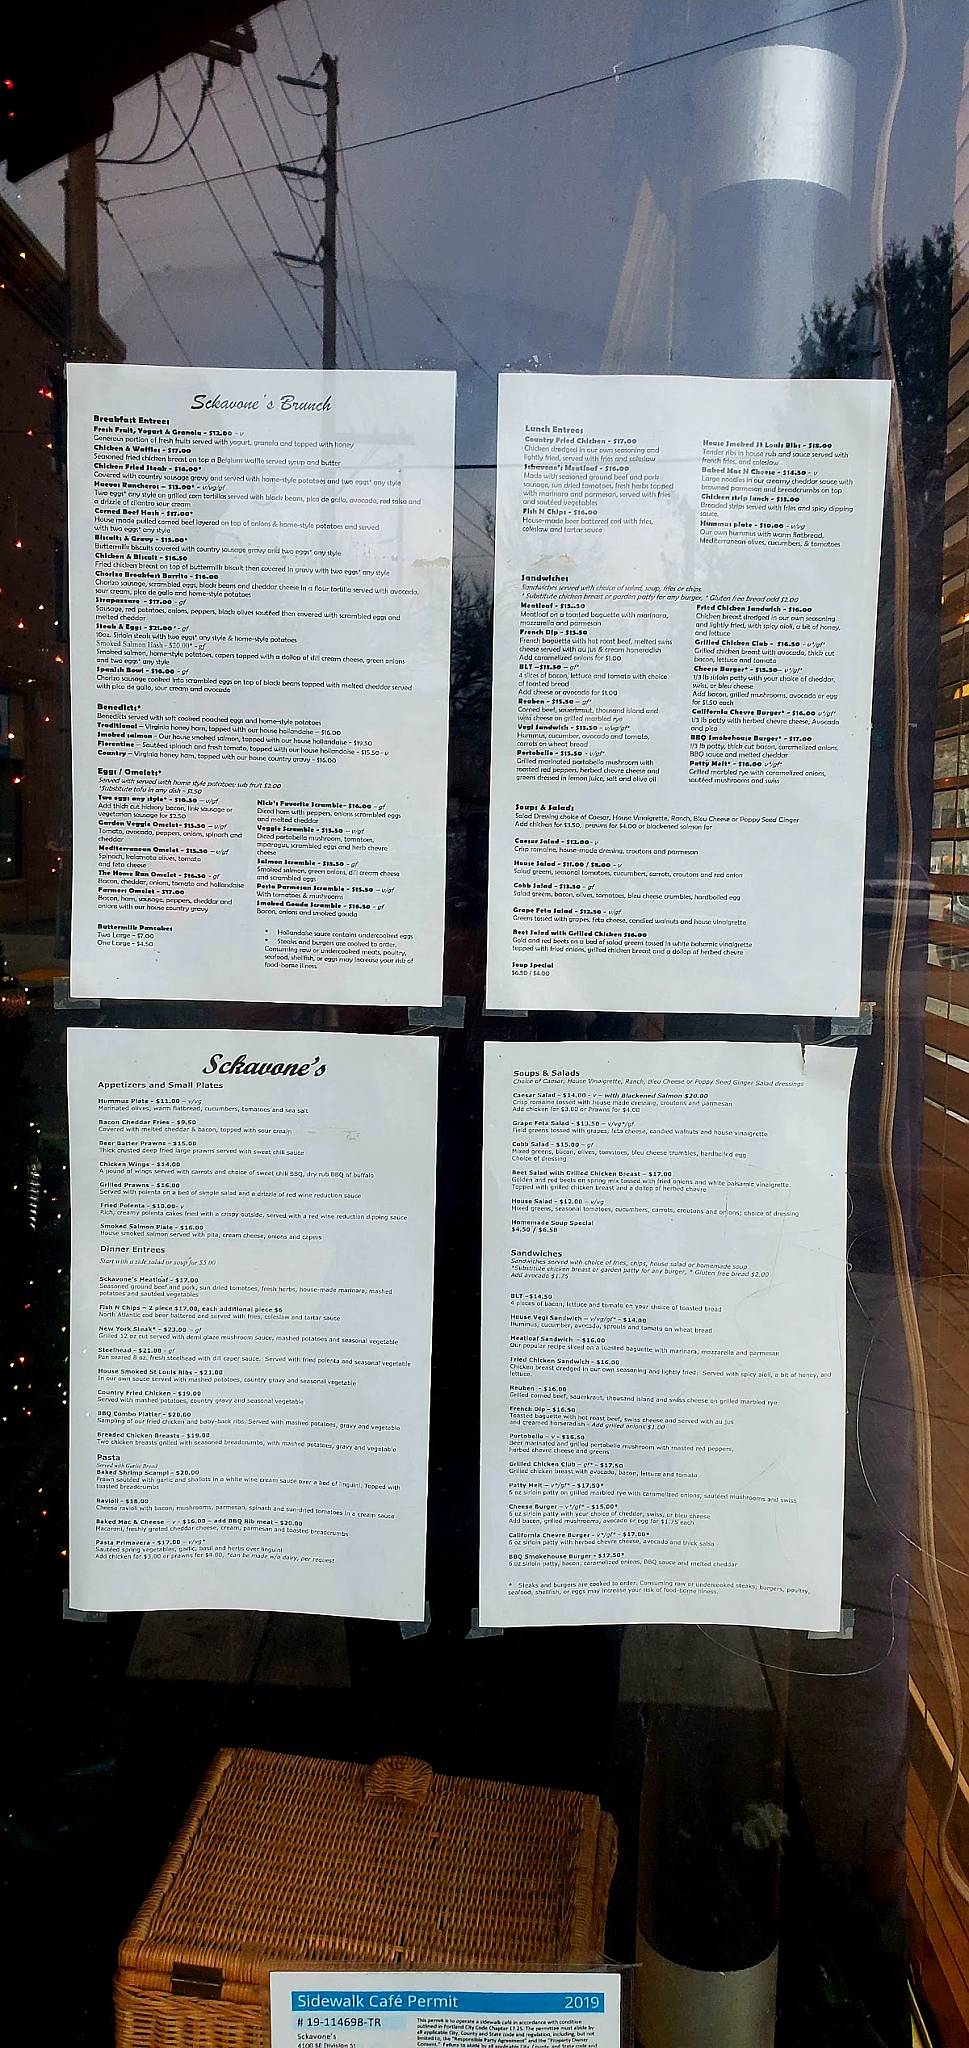 Sckavone's Brunch
Breakfast Entrees
Fresh Fruit, Yogurt & Granola - $12.00 - v
Generous portion of fresh fruits served with yogurt, granola and topped with honey
Chicken & Waffles - $17.00
Seasoned fried chicken breast on top a Belgium waffle served syrup and butter
Chicken Fried Steak - $16.00*
Covered with country sausage gravy and served with home-style potatoes and two eggs* any style
Huevos Rancheros - $13.00* - v/vg/gf
Two eggs* any style on grilled corn tortillas served with black beans, pico de gallo, avocado, red salsa and
a drizzle of cilantro sour cream
Corned Beef Hash - $17.00*
House made pulled corned beef layered on top of onions & home-style potatoes and served
with two eggs* any style
Biscuits & Gravy - $15.00*
Buttermilk biscuits covered with country sausage gravy and two eggs* any style
Chicken & Biscuit - $16.50
Fried chicken breast on top of buttermilk biscuit then covered in gravy with two eggs* any style
Chorizo Breakfast Burrito - $16.00
Chorizo sausage, scrambled eggs, black beans and cheddar cheese in a flour tortilla served with avocado,
sour cream, pico de gallo and home-style potatoes
Strapazzare - $17.00 - gf
Sausage, red potatoes, onions, peppers, black olives sautéed then covered with scrambled eggs and
melted cheddar
Steak & Eggs - $21.00* - gf
10oz. Sirloin steak with two eggs* any style & home-style potatoes
Smoked Salmon Hash - $20.00* - gf
Smoked salmon, home-style potatoes, capers topped with a dollop of dill cream cheese, green onions
and two eggs* any style
Spanish Bowl - $16.00 - gf
Chorizo sausage cooked into scrambled eggs on top of black beans topped with melted cheddar served
with pico de gallo, sour cream and avocado
Benedicts*
Benedicts served with soft cooked poached eggs and home-style potatoes
Traditional - Virginia honey ham, topped with our house hollandaise - $16.00
Smoked salmon - Our house smoked salmon, topped with our house hollandaise - $19.50
Florentine - Sautéed spinach and fresh tomato, topped with our house hollandaise - $15.50 - v
Country - Virginia honey ham, topped with our house country gravy - $16.00
Eggs / Omelets*
Served with served with home style potatoes: sub fruit $2.00
*Substitute tofu in any dish - $1.50
Two eggs any style* - $10.50 - v/gf
Add thick cut hickory bacon, link sausage or
vegetarian sausage for $2.50
Garden Veggie Omelet - $15.50 - v/gf
Tomato, avocado, peppers, onions, spinach and
cheddar
Mediterranean Omelet - $15.50 - v/gf
Spinach, kalamata olives, tomato
and feta cheese
The Home Run Omelet - $16.50 - gf
Bacon, cheddar, onions, tomato and hollandaise
Farmers Omelet - $17.00
Bacon, ham, sausage, peppers, cheddar and
onions with our house country gravy
Buttermilk Pancakes
Two Large - $7.00
One Large - $4.50
Nick's Favorite Scramble - $16.00 - gf
Diced ham with peppers, onions scrambled eggs
and melted cheddar
Veggie Scramble - $15.50 - gf
Diced portobella mushroom, tomatoes,
asparagus, scrambled eggs and herb chevre
cheese
Salmon Scramble - $18.50 - gf
Smoked salmon, green onions, dill cream cheese
and scrambled eggs
Porto Parmesan Scramble - $15.50 - v/gf
With tomatoes & mushrooms
Smoked Gouda Scramble - $16.50 - gf
Bacon, onions and smoked gouda
* Hollandaise sauce contains undercooked eggs
* Steaks and burgers are cooked to order.
Consuming raw or undercooked meats, poultry,
seafood, shellfish, or eggs may increase your risk of
food-borne illness.
Lunch Entrees
Country Fried Chicken - $17.00
Chicken dredged in our own seasoning and
lightly fried, served with fries and coleslaw
Sckavone's Meatloaf - $16.00
Made with seasoned ground beef and pork
sausage, sun dried tomatoes, fresh herbs topped
with marinara and parmesan, served with fries
and sautéed vegetables
Fish N Chips - $16.00
House-made beer battered cod with fries,
coleslaw and tartar sauce
House Smoked St Louis Ribs - $18.00
Tender ribs in house rub and sauce served with
french fries, and coleslaw
Baked Mac N Cheese - $14.50 - v
Large noodles in our creamy cheddar sauce with
browned parmesan and breadcrumbs on top
Chicken strip lunch - $15.00
Breaded strips served with fries and spicy dipping
sauce.
Hummus plate - $10.00 - v/vg
Our own hummus with warm flatbread,
Mediterranean olives, cucumbers, & tomatoes
Sandwiches
Sandwiches served with choice of salad, soup, fries or chips,
* Substitute chicken breast or garden patty for any burger, * Gluten free bread add $2.00
Meatloaf - $15.50
Meatloaf on a toasted baguette with marinara,
mozzarella and parmesan
French Dip - $15.50
French baguette with hot roast beef, melted swiss
cheese served with au jus & cream horseradish
Add caramelized onions for $1.00
BLT - $13.50 - gf*
4 slices of bacon, lettuce and tomato with choice
of toasted bread
Add cheese or avocado for $1.00
Reuben - $15.50 - gf*
Corned beef, sauerkraut, thousand island and
swiss cheese on grilled marbled rye
Vegi Sandwich - $13.50 - v/vg/gf*
Hummus, cucumber, avocado and tomato,
carrots on wheat bread
Portobello - $15.50 - v/gf*
Grilled marinated portobella mushroom with
roasted red peppers, herbed chevre cheese and
greens dressed in lemon juice, salt and olive oil
Fried Chicken Sandwich - $16.00
Chicken breast dredged in our own seasoning
and lightly fried, with spicy aioli, a bit of honey,
and lettuce
Grilled Chicken Club - $16.50 - v*/gf*
Grilled chicken breast with avocado, thick cut
bacon, lettuce and tomato
Cheese Burger* - $15.50 - v*/gf*
1/3 lb sirloin patty with your choice of cheddar,
swiss, or bleu cheese
Add bacon, grilled mushrooms, avocado or egg
for $1.50 each
California Chevre Burger* - $16.00 v*/gf*
1/3 lb patty with herbed chevre cheese, Avocado
and pico
BBQ Smokehouse Burger* - $17.00
1/3 lb patty, thick cut bacon, caramelized onions,
BBQ sauce and melted cheddar
Patty Melt* - $16.00 v*/gf*
Grilled marbled rye with caramelized onions,
sautéed mushrooms and swiss
Soups & Salads
Salad Dressing choice of Caesar, House Vinaigrette, Ranch, Bleu Cheese or Poppy Seed Ginger
Add chicken for $3.50, prawns for $4.00 or blackened salmon for
Caesar Salad - $12.00 - v
Crisp romaine, house-made dressing, croutons and parmesan
House Salad - $11.00 / $8.00 - v
Salad greens, seasonal tomatoes, cucumbers, carrots, croutons and red onion
Cobb Salad - $13.50 - gf
Salad greens, bacon, olives, tomatoes, bleu cheese crumbles, hardboiled egg
Grape Feta Salad - $12.50 - v/gf
Greens tossed with grapes, feta cheese, candied walnuts and house vinaigrette
Beet Salad with Grilled Chicken $16.00
Gold and red beets on a bed of salad greens tossed in white balsamic vinaigrette
topped with fried onions, grilled chicken breast and a dollop of herbed chevre
Soup Special
$6.50 / $4.00
Sckavone's
Appetizers and Small Plates
Hummus Plate - $11.00 - v/vg
Marinated olives, warm flatbread, cucumbers, tomatoes and sea salt
Bacon Cheddar Fries - $9.50
Covered with melted cheddar & bacon, topped with sour cream
Beer Batter Prawns - $15.00
Thick crusted deep fried large prawns served with sweet chili sauce
Chicken Wings - $14.00
A pound of wings served with carrots and choice of sweet chili BBQ, dry rub BBQ of buffalo
Grilled Prawns - $16.00
Served with polenta on a bed of simple salad and a drizzle of red wine reduction sauce
Fried Polenta - $10.00 - v
Rich, creamy polenta cakes fried with a crispy outside, served with a red wine reduction dipping sauce
Smoked Salmon Plate - $16.00
House smoked salmon served with pita, cream cheese, onions and capers
Dinner Entrees
Start with a side salad or soup for $5.00
Sckavone's Meatloaf - $17.00
Seasoned ground beef and pork, sun dried tomatoes, fresh herbs, house-made marinara, mashed
potatoes and sautéed vegetables
Fish N Chips - 2 piece $17.00, each additional piece $6
North Atlantic cod beer battered and served with fries, coleslaw and tartar sauce
New York Steak* - $23.00 - gf
Grilled 12 oz cut served with demi glaze mushroom sauce, mashed potatoes and seasonal vegetable
Steelhead - $21.00 - gf
Pan seared 8 oz. fresh steelhead with dill caper sauce. Served with fried polenta and seasonal vegetable
House Smoked St Louis Ribs - $21.00
In our own sauce served with mashed potatoes, country gravy and seasonal vegetable
Country Fried Chicken - $19.00
Served with mashed potatoes, country gravy and seasonal vegetable
BBQ Combo Platter - $20.00
Sampling of our fried chicken and baby-back ribs. Served with mashed potatoes, gravy and vegetable
Breaded Chicken Breasts - $19.00
Two chicken breasts grilled with seasoned breadcrumbs, with mashed potatoes, gravy and vegetable
Pasta
Served with Garlic Bread
Baked Shrimp Scampi - $20.00
Prawn sautéed with garlic and shallots in a white wine cream sauce over a bed of linguini. Topped with
toasted breadcrumbs
Ravioli - $18.00
Cheese ravioli with bacon, mushrooms, parmesan, spinach and sun-dried tomatoes in a cream sauce
Baked Mac & Cheese - v - $16.00 - add BBQ Rib meat - $20.00
Macaroni, freshly grated cheddar cheese, cream, parmesan and toasted breadcrumbs
Pasta Primavera - $17.00 - v/vg*
Sautéed spring vegetables, garlic, basil and herbs over linguini
Add chicken for $3.00 or prawns for $4.00, *can be made w/o dairy, per request
Soups & Salads
Choice of Caesar, House Vinaigrette, Ranch, Bleu Cheese or Poppy Seed Ginger Salad dressings
Caesar Salad - $14.00 - v - with Blackened Salmon $20.00
Crisp romaine tossed with house made dressing, croutons and parmesan
Add chicken for $3.00 or Prawns for $4.00
Grape Feta Salad - $13.50 - v/vg*/gf
Field greens tossed with grapes, feta cheese, candied walnuts and house vinaigrette
Cobb Salad - $15.00 - gf
Mixed greens, bacon, olives, tomatoes, bleu cheese crumbles, hardboiled egg
Choice of dressing
Beet Salad with Grilled Chicken Breast - $17.00
Golden and red beets on spring mix tossed with fried onions and white balsamic vinaigrette.
Topped with grilled chicken breast and a dollop of herbed chevre
House Salad - $12.00 - v/vg
Mixed greens, seasonal tomatoes, cucumbers, carrots, croutons and onions; choice of dressing
Homemade Soup Special
$4.50 / $6.50
Sandwiches
Sandwiches served with choice of fries, chips, house salad or homemade soup
*Substitute chicken breast or garden patty for any burger, * Gluten free bread $2.00
Add avocado $1.75
BLT - $14.50
4 pieces of bacon, lettuce and tomato on your choice of toasted bread
House Vegi Sandwich - v/vg/gf* - $14.00
Hummus, cucumber, avocado, sprouts and tomato on wheat bread
Meatloaf Sandwich - $16.00
Our popular recipe sliced on a toasted baguette with marinara, mozzarella and parmesan
Fried Chicken Sandwich - $16.00
Chicken breast dredged in our own seasoning and lightly fried. Served with spicy aioli, a bit of honey, and
lettuce.
Reuben - $16.00
Grilled corned beef, sauerkraut, thousand island and swiss cheese on grilled marbled rye
French Dip - $16.50
Toasted baguette with hot roast beef, swiss cheese and served with au jus
and creamed horseradish - Add grilled onions $1.00
Portobello - v - $16.50
Beer marinated and grilled portobello mushroom with roasted red peppers,
herbed chevre cheese and greens
Grilled Chicken Club - gf* - $17.50
Grilled chicken breast with avocado, bacon, lettuce and tomato
Patty Melt - v*/gf* - $17.50*
6 oz sirloin patty on grilled marbled rye with caramelized onions, sautéed mushrooms and swiss
Cheese Burger - v*/gf* - $15.00*
6 oz sirloin patty with your choice of cheddar, swiss, or bleu cheese
Add bacon, grilled mushrooms, avocado or egg for $1.75 each
California Chevre Burger - v*/gf* - $17.00*
6 oz sirloin patty with herbed chevre cheese, avocado and thick salsa
BBQ Smokehouse Burger - $17.50*
6 oz sirloin patty, bacon, caramelized onions, BBQ sauce and melted cheddar
* Steaks and burgers are cooked to order. Consuming raw or undercooked steaks, burgers, poultry,
seafood, shellfish, or eggs may increase your risk of food-borne illness.
Sidewalk Café Permit 2019
# 19-114698-TR
Sckavone's
4100 SE Division St
This permit is to operate a sidewalk café in accordance with condition
outlined in Portland City Code Chapter 17.25. The permittee must abide by
all applicable City, County and State code and regulation, including, but not
limited to, the "Responsible Party Agreement" and the "Property Owner
Consent." Failure to abide by all applicable City, County, and State code and